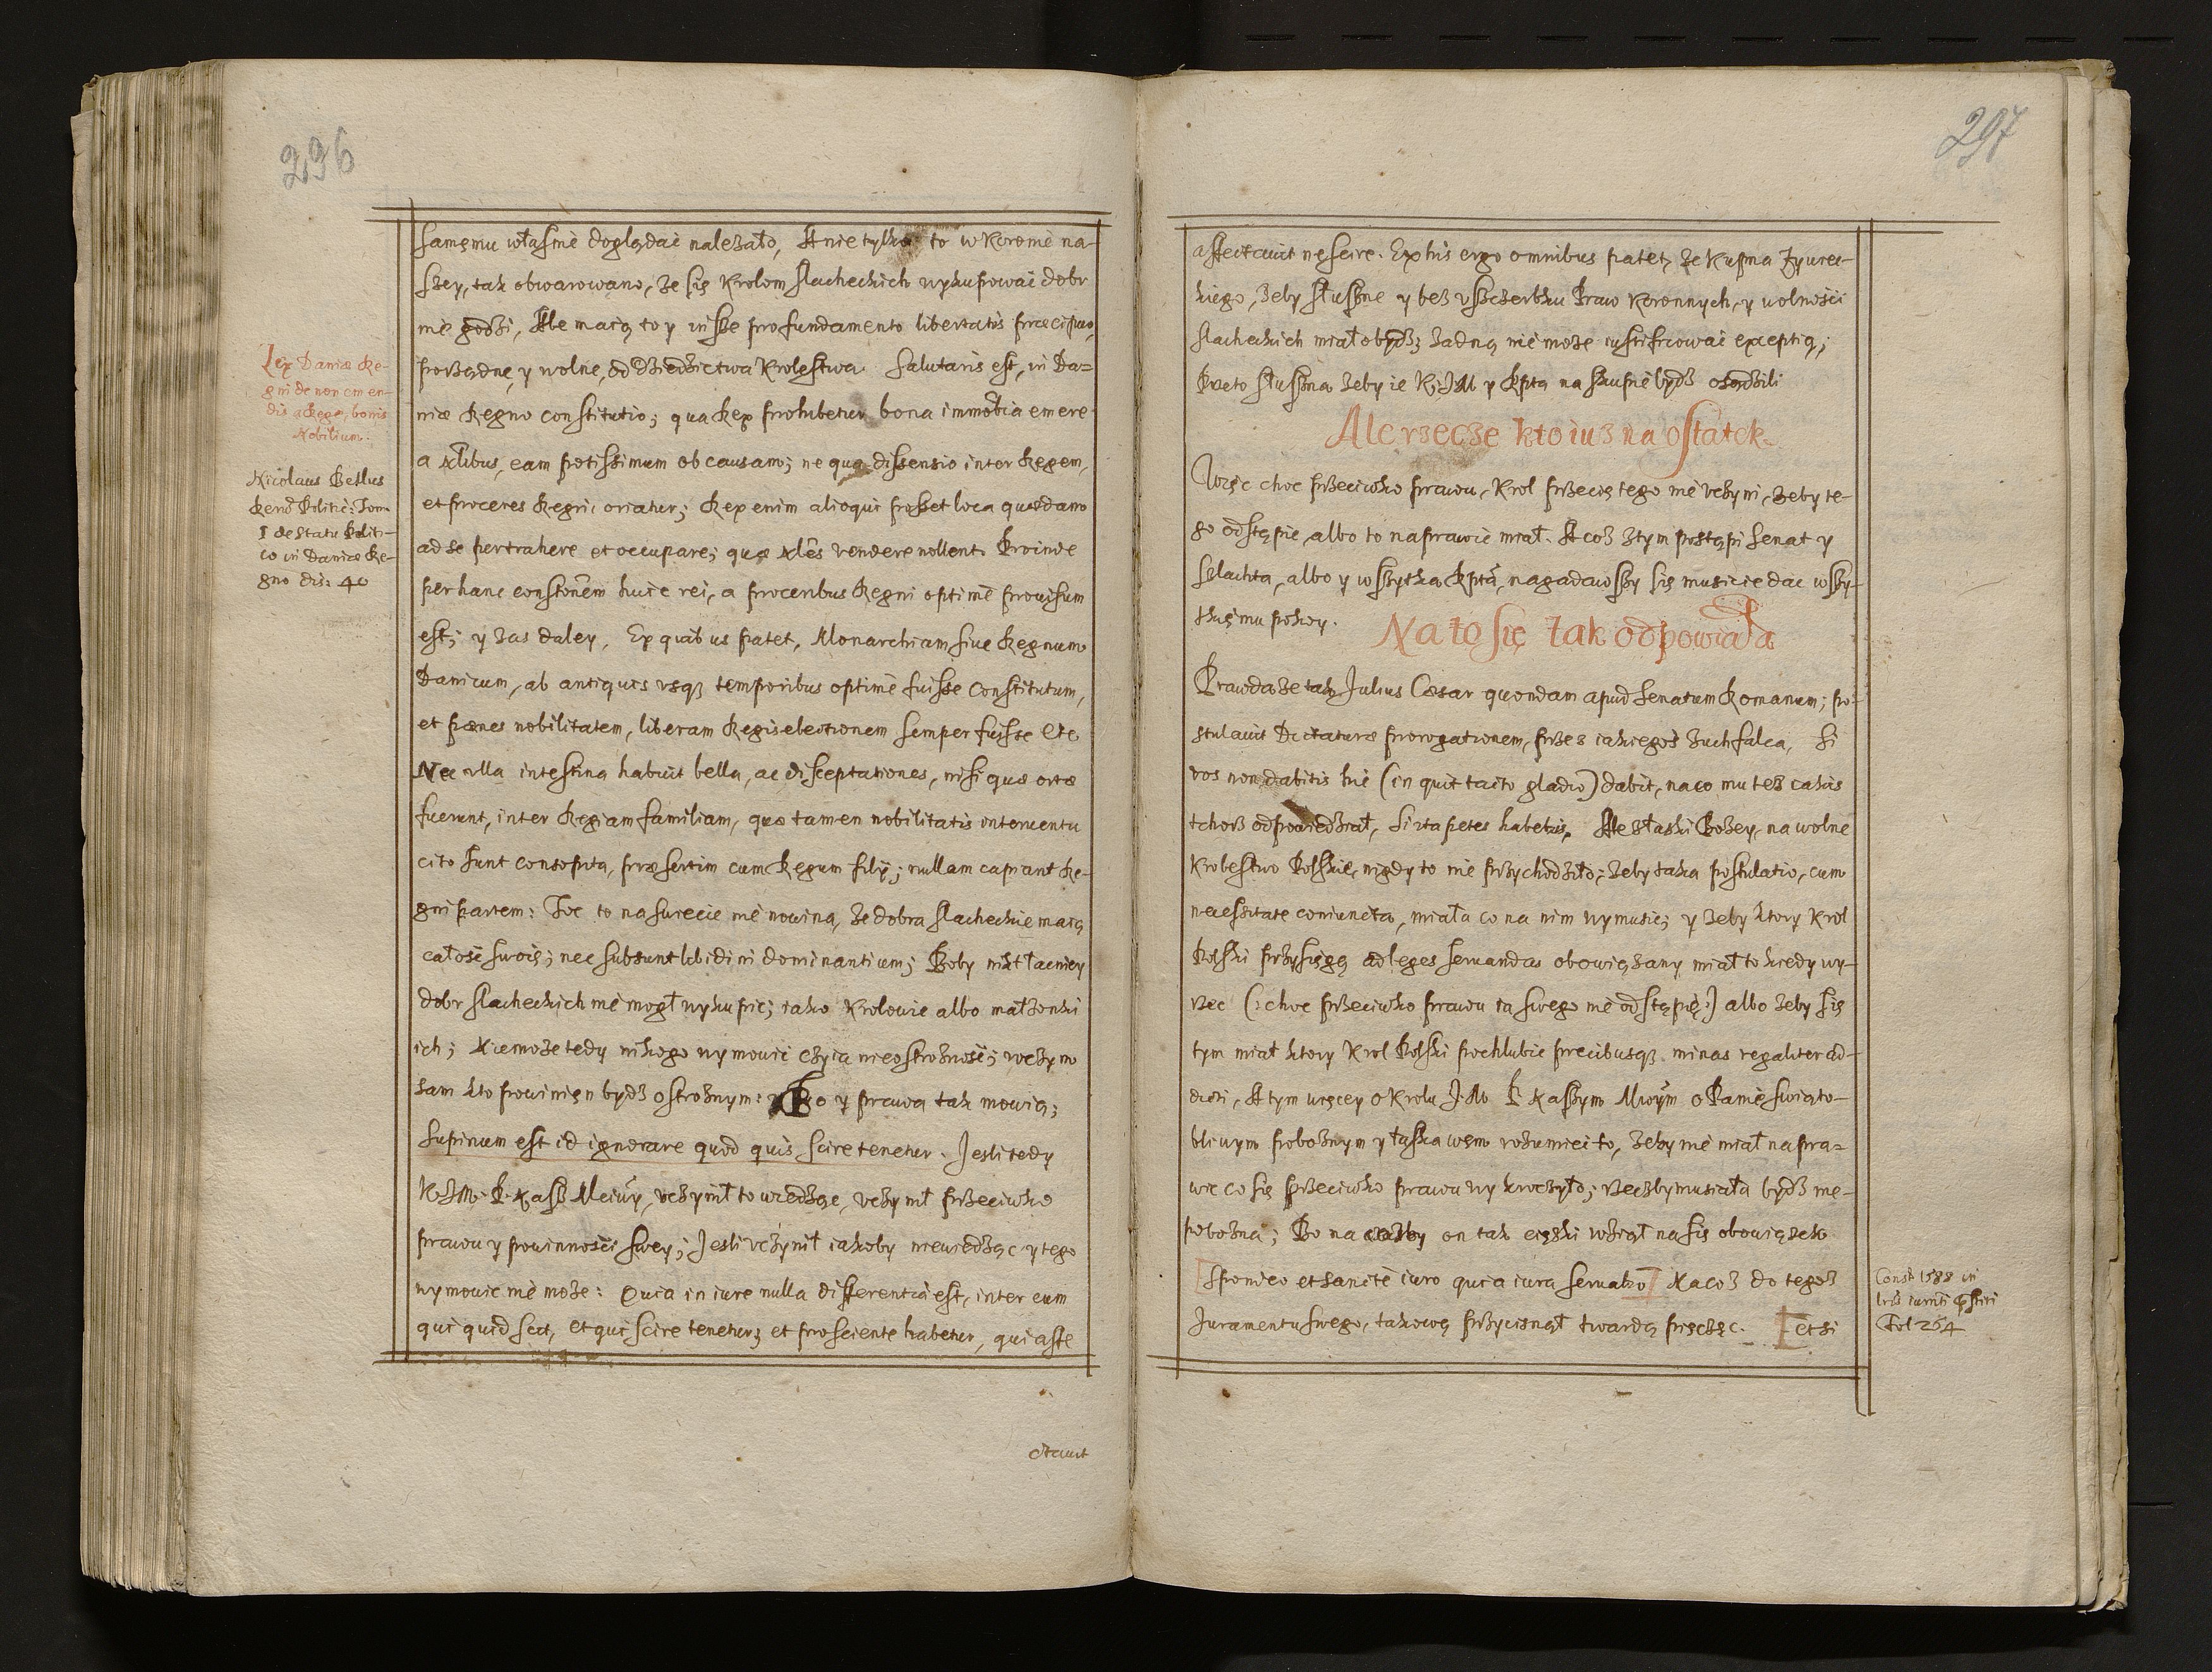 296
samęmu własnie doglądac nalezało, A nie tylko to w Koronie na-
szey, tak obwarowano, ze się Krolom slacheckich wykupowac dobr
nie godzi, Ale maią to y insze pro fundamento libertatis præcipuo,
porządne, y wolne, od Dziedzictwa Krolestwa. Salutaris est, in Da-
niæ Regno constitutio; qua Rex prohibetur bona immobilia emere
a Nobilibus, eam potissimum ob causam; ne qua dissensio inter Regem,
et proceres Regni, oriatur; Rex enim alioqui posset loca quædam
ad se pertrahere et occupare; quæ Nobiles vendere nollent. Proinde
per hanc constõnem huic rei, a proceribus Regni optimè provisum
est; y zas daley, Ex quibus patet, Monarchiam sive Regnum
Danicum, ab antiquis vsq3 temporibus optimè fuisse constitutum,
et pænes nobilitatem, liberam Regis electionem semper fuisse etc
Nec vlla intestina habuit bella, ac disceptationes, nisi quæ ortæ
fuerunt, inter Regiam familiam, quæ tamen nobilitatis interuentu
cito sunt consopita, præsertim cum Regum filij; nullam capiant Re-
gni partem: Toc to na swiecie nie nowina, ze dobra slacheckie maią
całosc swoię; nec subsunt libidini dominantium; Boby nikt łacniey
dobr slacheckich nie mogł wykupic; iako Krolowie albo małzonki
ich; Nie moze tedy nikogo wymowic czyia nieostroznosc; w czym
sam kto powinien bydz ostroznym: Bo y prawa tak mowią;
Supinum est id ignorare quod quis scire tenetur. Iesli tedy
K. J. M. P. Nasz Mciwy, vczynił to wiedząc, vczynił przeciwko
prawu y powinnosci swey; Iesli vczynił iakoby niewiedząc y tego
wymowic nie moze: Quia in iure nulla differentia est, inter eum
qui quid scit, et qui scire tenetur; et pro sciente habetur, qui affe
ctauit
Lex Daniæ Re-
gni de non emen-
dis a Rege, bonis
Nobilium.
Nicolaus Bellus
Rerũ Politic: Tom
I de statu Politi-
co in Daniæ Re-
gno dis: 40
297
affectauit nescire. Ex his ergo omnibus patet, ze kupna Zywiec-
kiego, zeby słuszne y bez vszczerbku Praw Koronnych, y wolnosci
slacheckich miało bydz; zadną nie moze iustificowac exceptią;
Przeto słuszna zeby ie K. J. M y Rpta na skupnie bydz osądzili
Ale rzecze kto iuz na ostatek
Więc choc przeciwko prawu, Krol przecię tego nie vczyni, zeby te-
go odstąpic, albo to naprawic miał. A coz ztym postąpi Senat y
Szlachta, albo y wszytka Rpta, nagadawszy się musicie dac wszy-
tkięmu pokoy.
Na to się tak odpowiada
Prawda ze tak Julius Cæsar quondam apud Senatum Romanum; po-
stulauit Dictaturæ prorogationem, przez iakiegos zuchfalca, Si
vos non dabitis hic (inquit tacto gladio) dabit, na co mu tez takis
tchorz odpowiedział, Si ita petes habebis. Ale z łaski Bozey, na wolne
Krolestwo Polskie, nigdy to nie przychodziło; zeby taka postulatio, cum
necessitate coniuncta, miała co na nim wymusic; y zeby ktory Krol
Polski przysięgą ad leges seruandas obowiązany miał to kiedy wy-
rzec (: choc przeciwko prawu ia swego nie odstąpię :) albo zeby się
tym miał ktory Krol Polski pochlubic precibusq3 minas regaliter ad-
didi, A tym więcey o Krolu J. M P. Naszym Mciwym o Panie swiąto-
bliwym poboznym y łaskawem rozumiec to, zeby nie miał napra-
wic co się przeciwko prawu wykroczyło; rzeczby musiała bydz nie-
pobozna; Bo na cozby on tak cięszki wział na się obowiązek
Spondeo et sancté iuro quia iura seruabo Na coz do tegoz
Juramentu swego, takową przycisnął twardą pięczęc. Et si
Const 1588 in
lris iuramti
Fol 264